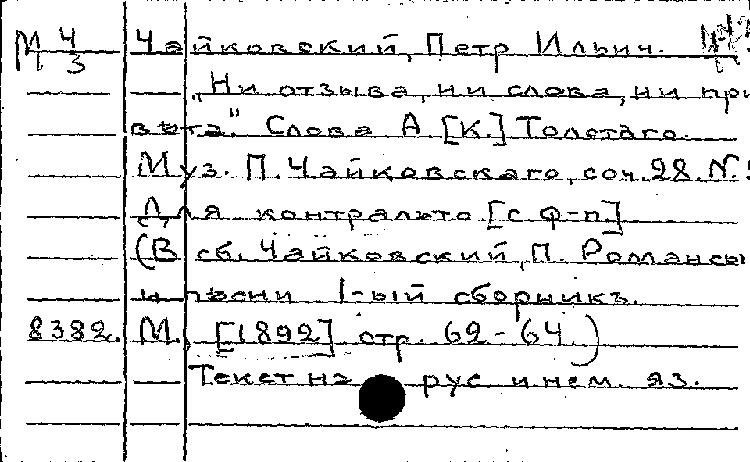 М 4/3 Чайковский, Петр Ильич.
„Ни отзыва, ни слова, ни при
вѣта." Слова А. [К.] Толстаго.
Муз. П. Чайковскаго, соч. 28. N.
Для контральто [с ф-п.]
(В сб. Чайковский, П. Романсы
и пѣсни 1-ый сборникъ.
8382. М., [1892] стр. 62-64)
Текст на рус. и нем. яз.